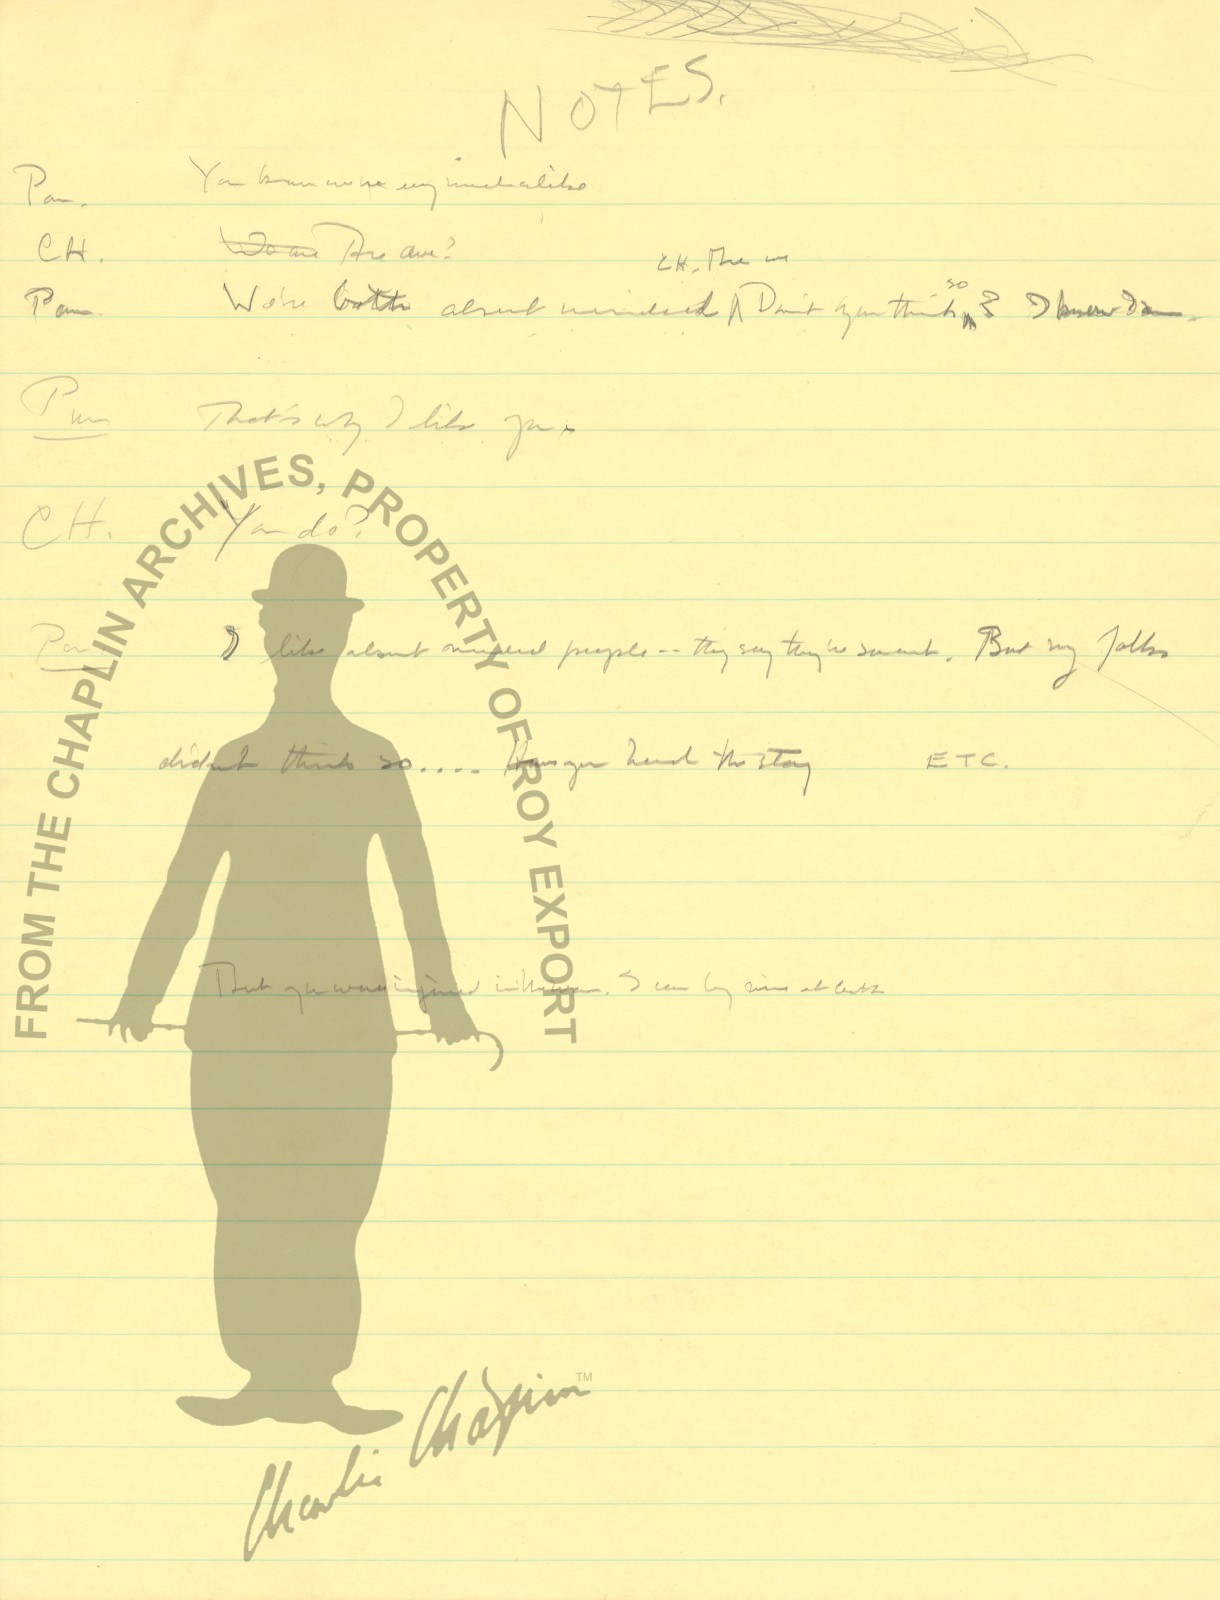 NOTES.
Pau. You know we're very much alike
CH. We are The are?
CH. The we
Pau. We're both absent minded Don't you think so? I know I am
Pau That's why I like you.
CH. You do?
Pau I like absent minded people -- they say they're smart. But my folks
didn't think so.... Have you heard the story ETC.
But you were injured in the
FROM THE CHAPLIN ARCHIVES, PROPERTY OF ROY EXPORT
Charlie Chaplin TM